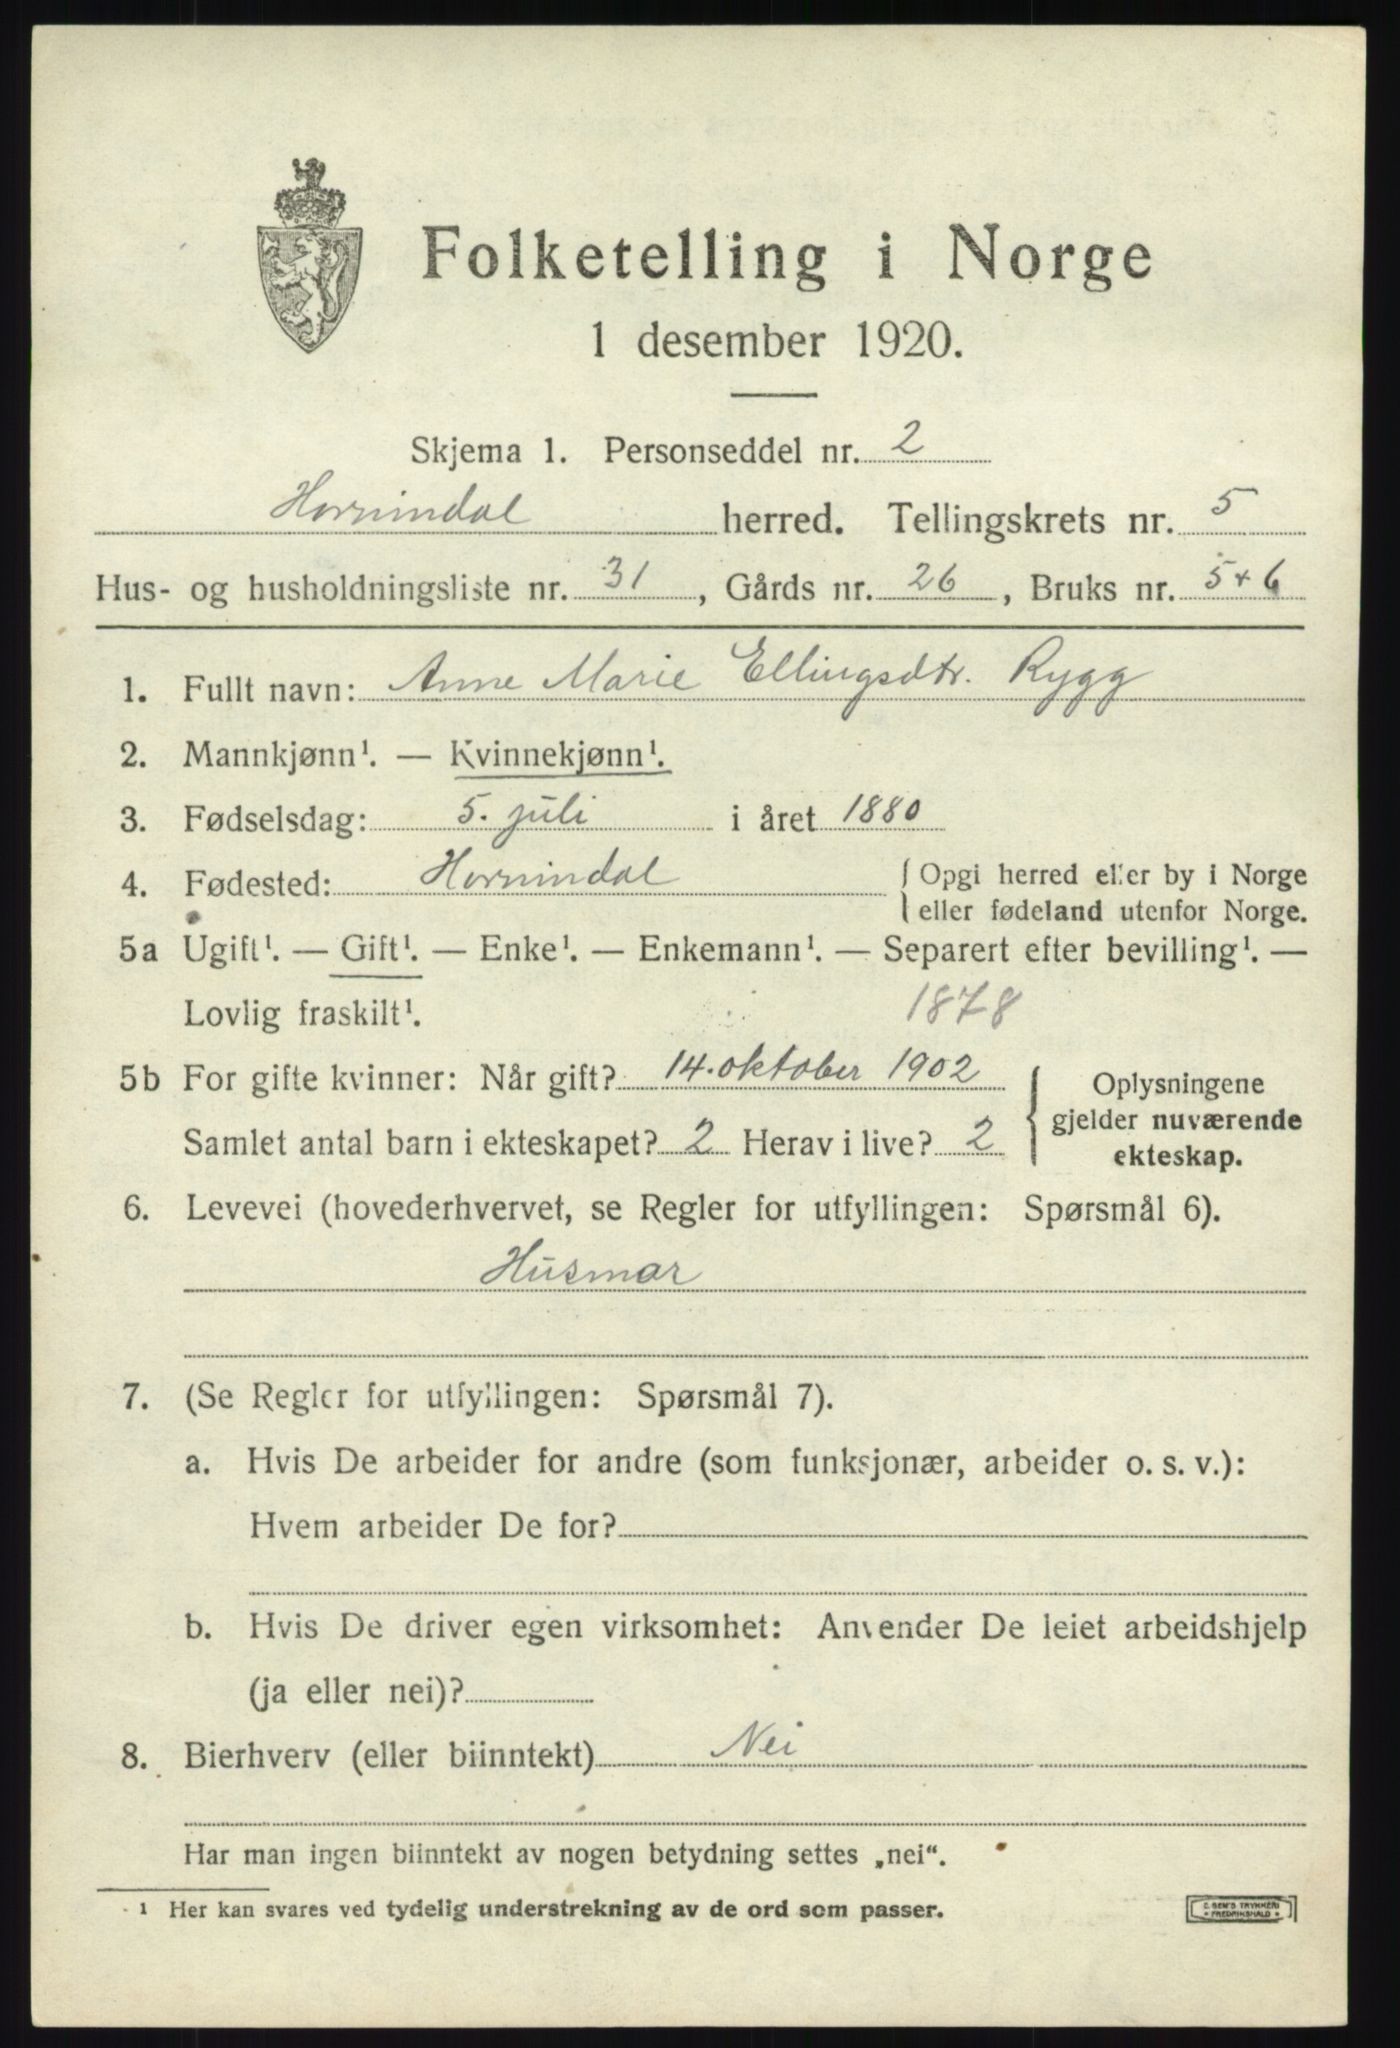 Folketelling i Norge
1 desember 1920.
Skjema 1. Personseddel nr. 2
Hornindal herred. Tellingskrets nr. 5
Hus- og husholdningsliste nr. 31, Gårds nr. 26, Bruks nr. 5+6
1. Fullt navn: Anne Marie Ellingsdtr. Rygg
2. Mannkjønn¹. — Kvinnekjønn¹.
3. Fødselsdag: 5. juli i året 1880
4. Fødested: Hornindal { Opgi herred eller by i Norge
eller fødeland utenfor Norge.
5a Ugift¹. — Gift¹. — Enke¹. — Enkemann¹. — Separert efter bevilling¹. —
Lovlig fraskilt¹. 1878
5b For gifte kvinner: Når gift? 14. oktober 1902
Samlet antal barn i ekteskapet? 2 Herav i live? 2
Oplysningene
gjelder nuværende
ekteskap.
6. Levevei (hovederhvervet, se Regler for utfyllingen: Spørsmål 6).
Husmor
7. (Se Regler for utfyllingen: Spørsmål 7).
a. Hvis De arbeider for andre (som funksjonær, arbeider o. s. v.):
Hvem arbeider De for?
b. Hvis De driver egen virksomhet: Anvender De leiet arbeidshjelp
(ja eller nei)?
8. Bierhverv (eller biinntekt) Nei
Har man ingen biinntekt av nogen betydning settes „nei“.
¹ Her kan svares ved tydelig understrekning av de ord som passer.
TRYKKERI
FREDRIKSHALD